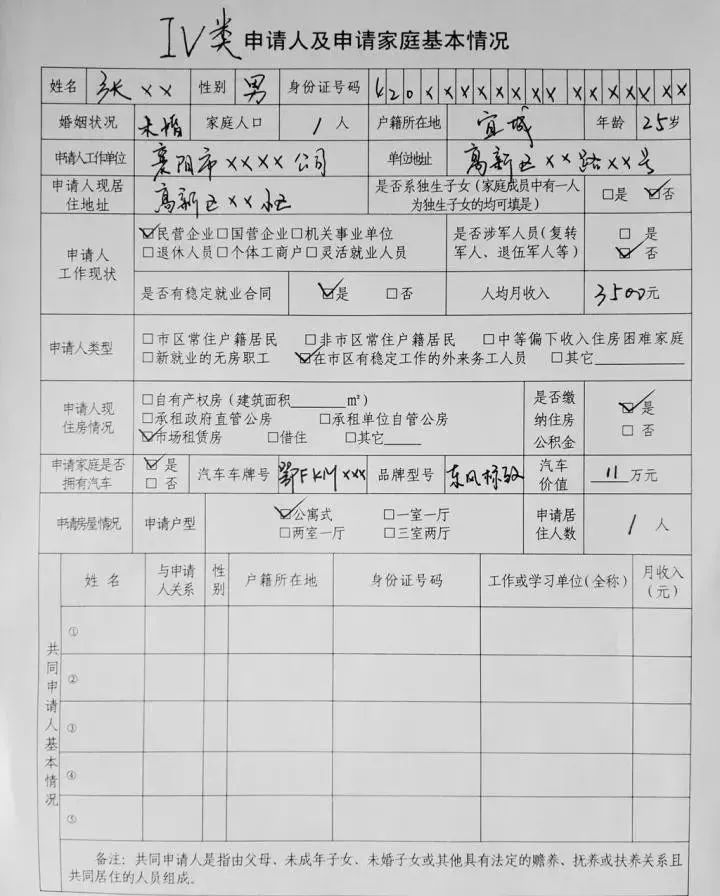 IV类 申请人及申请家庭基本情况
姓名 张×× 性别 男 身份证号码 420×××××××××××××××
婚姻状况 未婚 家庭人口 1人 户籍所在地 宜城 年龄 25岁
申请人工作单位 襄阳市××××公司 单位地址 高新区××路××号
申请人现居住地址 高新区××小区 是否系独生子女(家庭成员中有一人为独生子女的均可填是) □是 ☑否
申请人工作现状 ☑民营企业□国营企业□机关事业单位
□退休人员□个体工商户□灵活就业人员
是否涉军人员(复转军人、退伍军人等) □是
☑否
是否有稳定就业合同 ☑是 □否 人均月收入 3500元
申请人类型 □市区常住户籍居民 □非市区常住户籍居民 □中等偏下收入住房困难家庭
□新就业的无房职工 ☑在市区有稳定工作的外来务工人员 □其它______
申请人现住房情况 □自有产权房(建筑面积______㎡)
□承租政府直管公房 □承租单位自管公房
☑市场租赁房 □借住 □其它____
是否缴纳住房公积金 ☑是
□否
申请家庭是否拥有汽车 ☑是
□否
汽车车牌号 鄂FKM××× 品牌型号 东风标致 汽车价值 11万元
申请房屋情况 申请户型 ☑公寓式 □一室一厅
□两室一厅 □三室两厅
申请居住人数 1人
共同申请人基本情况
姓名 与申请人关系 性别 户籍所在地 身份证号码 工作或学习单位(全称) 月收入(元)
①
②
③
④
⑤
备注：共同申请人是指由父母、未成年子女、未婚子女或其他具有法定的赡养、抚养或扶养关系且
共同居住的人员组成。